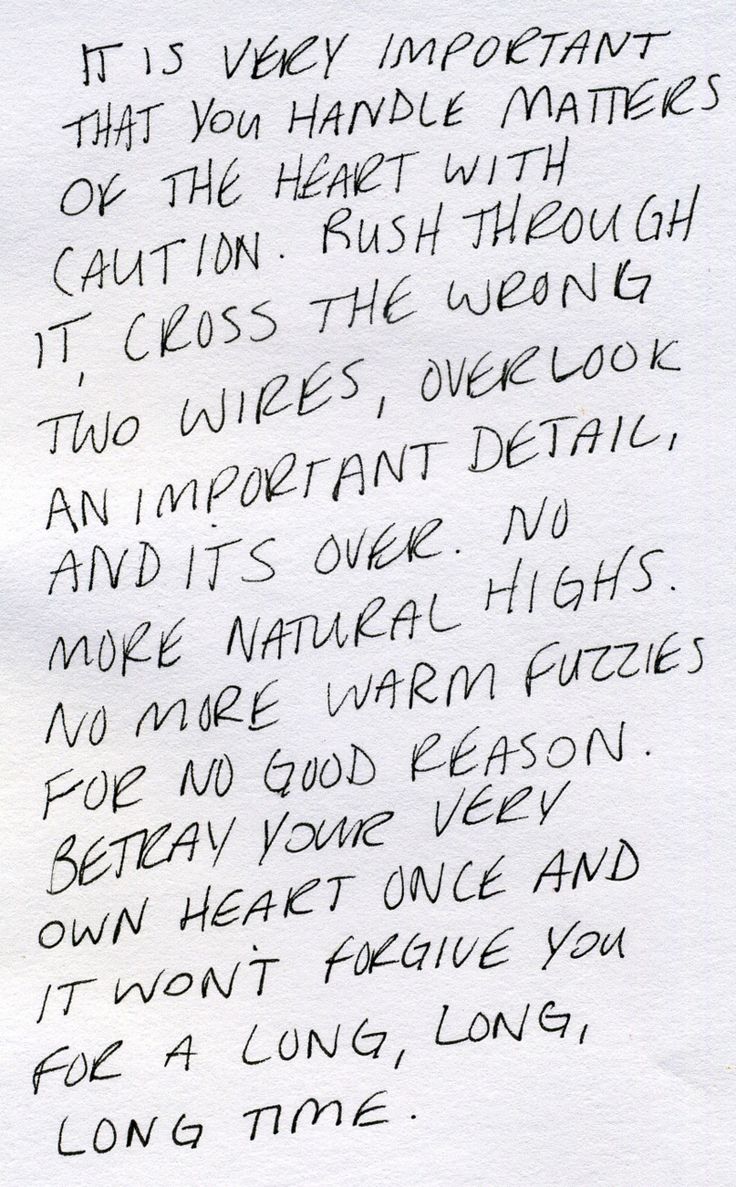 IT IS VERY IMPORTANT
THAT YOU HANDLE MATTERS
OF THE HEART WITH
CAUTION. RUSH THROUGH
IT, CROSS THE WRONG
TWO WIRES, OVERLOOK
AN IMPORTANT DETAIL,
AND ITS OVER. NO
MORE NATURAL HIGHS.
NO MORE WARM FUZZIES
FOR NO GOOD REASON.
BETRAY YOUR VERY
OWN HEART ONCE AND
IT WON'T FORGIVE YOU
FOR A LONG, LONG,
LONG TIME.